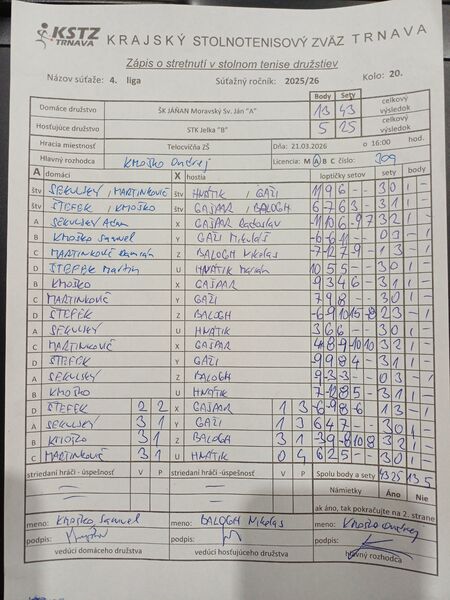 KSTZ TRNAVA KRAJSKÝ STOLNOTENISOVÝ ZVÄZ TRNAVA
Zápis o stretnutí v stolnom tenise družstiev
Názov súťaže: 4. liga Súťažný ročník: 2025/26 Kolo: 20.
Body Sety
Domáce družstvo ŠK JÁŇAN Moravský Sv. Ján "A" 13 43 celkový výsledok
Hosťujúce družstvo STK Jelka "B" 5 25 celkový výsledok
Hracia miestnosť Telocvičňa ZŠ DŇA: 21.03.2026 o 16:00 hod.
Hlavný rozhodca KMOŠKO Ondrej Licencia: M A B C číslo: 309
A domáci X hostia loptičky setov sety body
štv SEKULSKY, MARTINKOVIČ štv HNÁTIK, GAŽI 11 9 6 - - 3 0 1 -
štv ŠTEFEK, KMOŠKO štv GAŠPAR, BALOGH 6 -7 6 3 - 3 1 1 -
A SEKULSKY Adam X GAŠPAR Radoslav 3 2 1 -
B KMOŠKO Samuel Y GAŽI Mikuláš 0 3 - 1
C MARTINKOVIČ Damián Z BALOGH Nikolas 1 3 - 1
D ŠTEFEK Martin U HNÁTIK Marián 10 5 5 - - 3 0 1 -
B KMOŠKO X GAŠPAR 9 3 -4 6 - 3 1 1 -
C MARTINKOVIČ Y GAŽI 7 9 8 - - 3 0 1 -
D ŠTEFEK Z BALOGH -6 -9 10 15 -8 2 3 - 1
A SEKULSKY U HNÁTIK 3 6 6 - - 3 0 1 -
C MARTINKOVIČ X GAŠPAR 3 2 1 -
D ŠTEFEK Y GAŽI 3 1 1 -
A SEKULSKY Z BALOGH -9 -3 -3 - - 0 3 - 1
B KMOŠKO U HNÁTIK 3 1 1 -
D ŠTEFEK 2 2 X GAŠPAR 1 3 -6 -9 8 -6 1 3 - 1
A SEKULSKY 3 1 Y GAŽI 1 3 6 4 7 - - 3 0 1 -
B KMOŠKO 3 1 Z BALOGH 3 1 3 2 1 -
C MARTINKOVIČ 3 1 U HNÁTIK 0 4 6 2 5 - - 3 0 1 -
striedaní hráči - úspešnosť V P striedaní hráči - úspešnosť V P Spolu body a sety 43 25 13 5
Námietky Áno Nie
ak áno, tak pokračujte na 2. strane
meno: KMOŠKO, Samuel meno: BALOGH Nikolas meno: KMOŠKO Ondrej
podpis: podpis: podpis:
vedúci domáceho družstva vedúci hosťujúceho družstva hlavný rozhodca